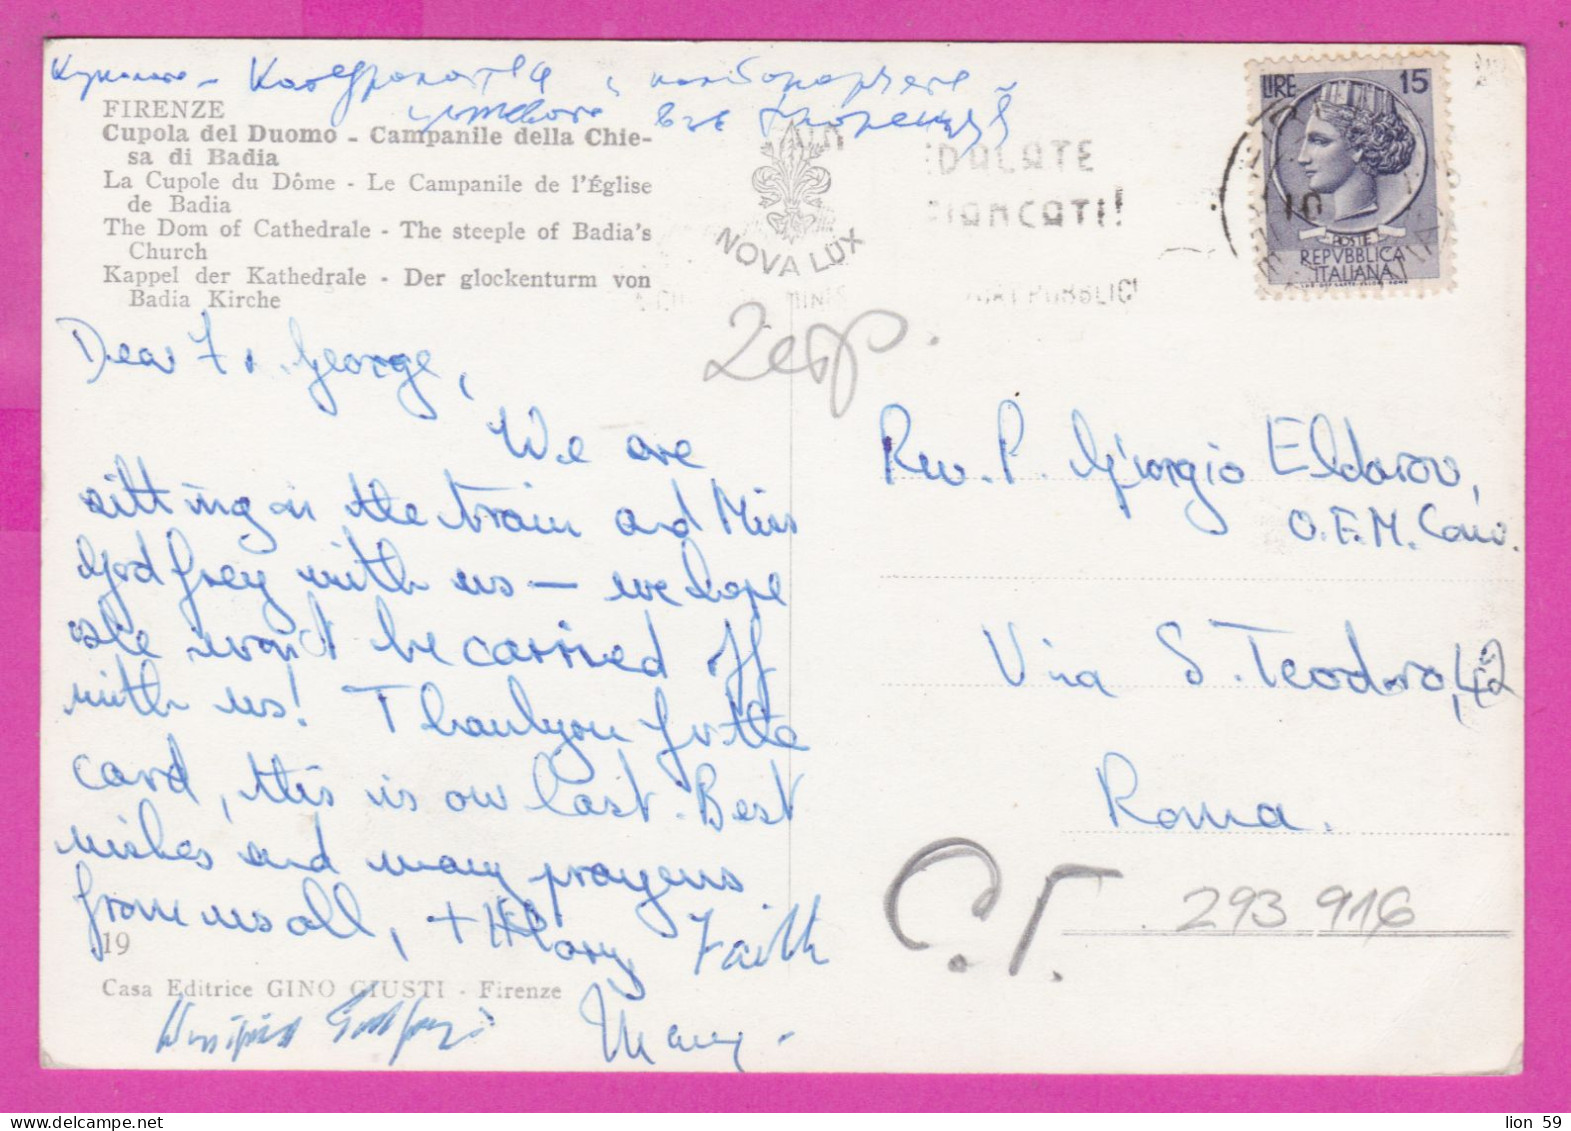 FIRENZE
Cupola del Duomo - Campanile della Chie-
sa di Badia
La Cupole du Dôme - Le Campanile de l'Église
de Badia
The Dom of Cathedrale - The steeple of Badia's
Church
Kappel der Kathedrale - Der glockenturm von
Badia Kirche
NOVA LUX
LIRE 15
POSTE
REPVBBLICA
ITALIANA
Dear Fr. George,
We are
sitting in the train and Miss
Godfrey with us — we hope
she won't be carried off
with us! Thank you for the
card, this is our last. Best
wishes and many prayers
from us all, + Hilary Faith
Winifred Godfrey Mary.
Rev. P. Giorgio Eldarov,
O.F.M. Conv.
Via S. Teodoro, 42
Roma.
C.T.
293 916
19
Casa Editrice GINO GIUSTI - Firenze
lion 59